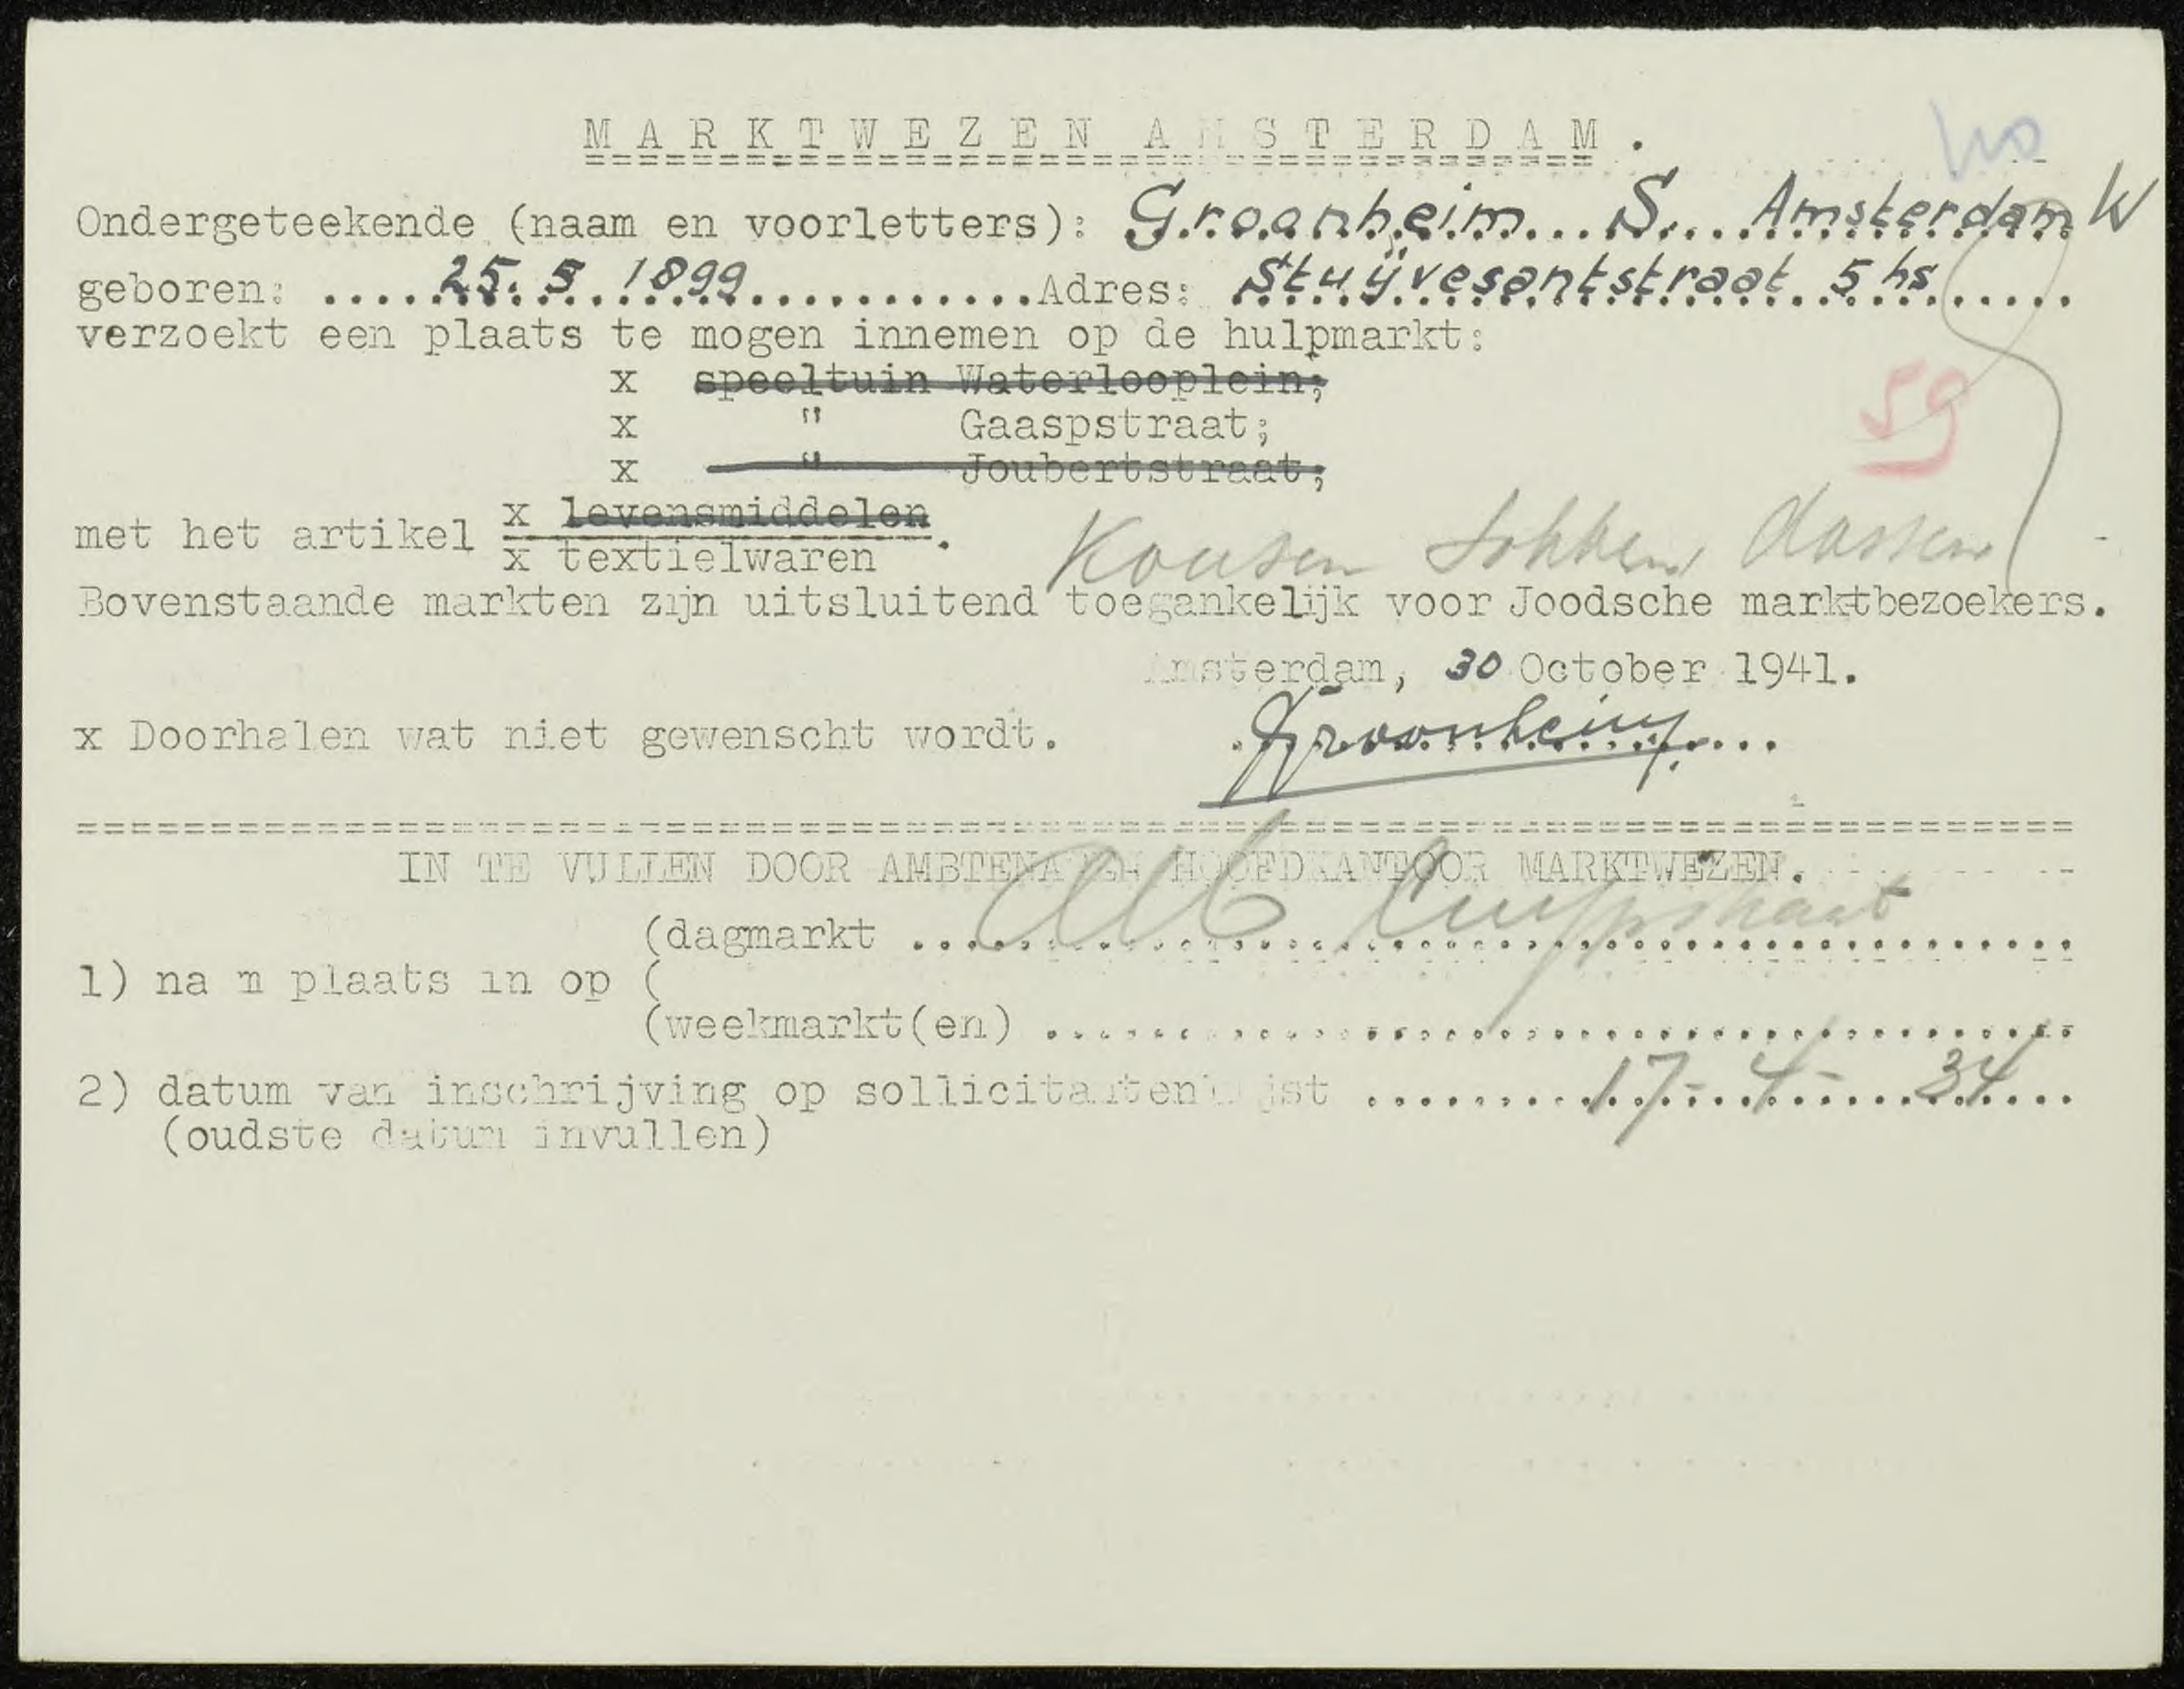 MARKTWEZEN AMSTERDAM.
Ondergeteekende (naam en voorletters): Groonheim S. Amsterdam W
geboren: 25.5.1899 Adres: Stuÿvesantstraat 5 hs
verzoekt een plaats te mogen innemen op de hulpmarkt:
x speeltuin Waterlooplein;
x " Gaaspstraat;
59
x " Joubertstraat;
x levensmiddelen
met het artikel
x textielwaren.
Kousen Sokken dassen
Bovenstaande markten zijn uitsluitend toegankelijk voor Joodsche marktbezoekers.
Amsterdam, 30 October 1941.
x Doorhalen wat niet gewenscht wordt. Groonheim
IN TE VULLEN DOOR AMBTENAREN HOOFDKANTOOR MARKTWEZEN.
(dagmarkt Alb Cuypstraat
1) na m plaats in op (
(weekmarkt(en)
2) datum van inschrijving op sollicitantenlijst 17-4-34
(oudste datum invullen)